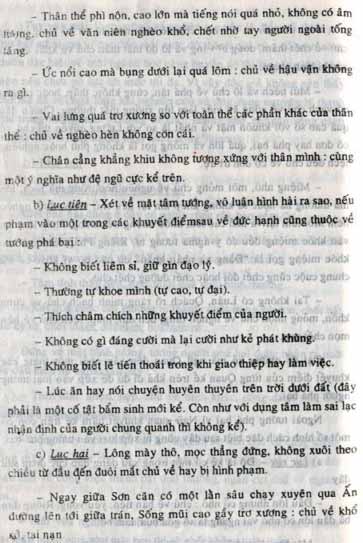 – Thân thể phì nộn, cao lớn mà tiếng nói quá nhỏ, không có âm
lượng, chủ về văn niên nghèo khổ, chết nhờ tay người ngoài tống
táng.
– Ức nổi cao mà bụng dưới lại quá lõm : chủ về hậu vận không
ra gì.
– Vai lưng quá trơ xương so với toàn thể các phần khác của thân
thể : chủ về nghèo hèn không con cái.
– Chân cẳng khẳng khiu không tượng xứng với thân mình : cùng
một ý nghĩa như đệ ngũ cực kể trên.
b) Lục tiện – Xét về mặt tâm tướng, vô luân hình hài ra sao, nếu
phạm vào một trong các khuyết điểmsau về đức hạnh cũng thuộc về
tướng phá bại :
– Không biết liêm sỉ, giữ gìn đạo lý.
– Thường tự khoe mình (tự cao, tự đại).
– Thích châm chích những khuyết điểm của người.
– Không có gì đáng cười mà lại cười như kẻ phát khùng.
– Không biết lẽ tiến thoái trong khi giao thiệp hay làm việc.
– Lúc ăn hay nói chuyện huyên thuyên trên trời dưới đất (đây
phải là một cố tật bẩm sinh mới kể. Còn như với dụng tâm làm sai lạc
nhận định của người chung quanh thì không kể).
c) Lục hại – Lông mày thô, mọc thẳng đứng, không xuôi theo
chiều từ đầu đến đuôi mắt chủ về hay bị hình phạm.
– Ngay giữa Sơn căn có một lằn sâu chạy xuyên qua Ấn
đường lên tới giữa trán, Sống mũi cao gầy trơ xương : chủ về khổ
sở, tai nạn